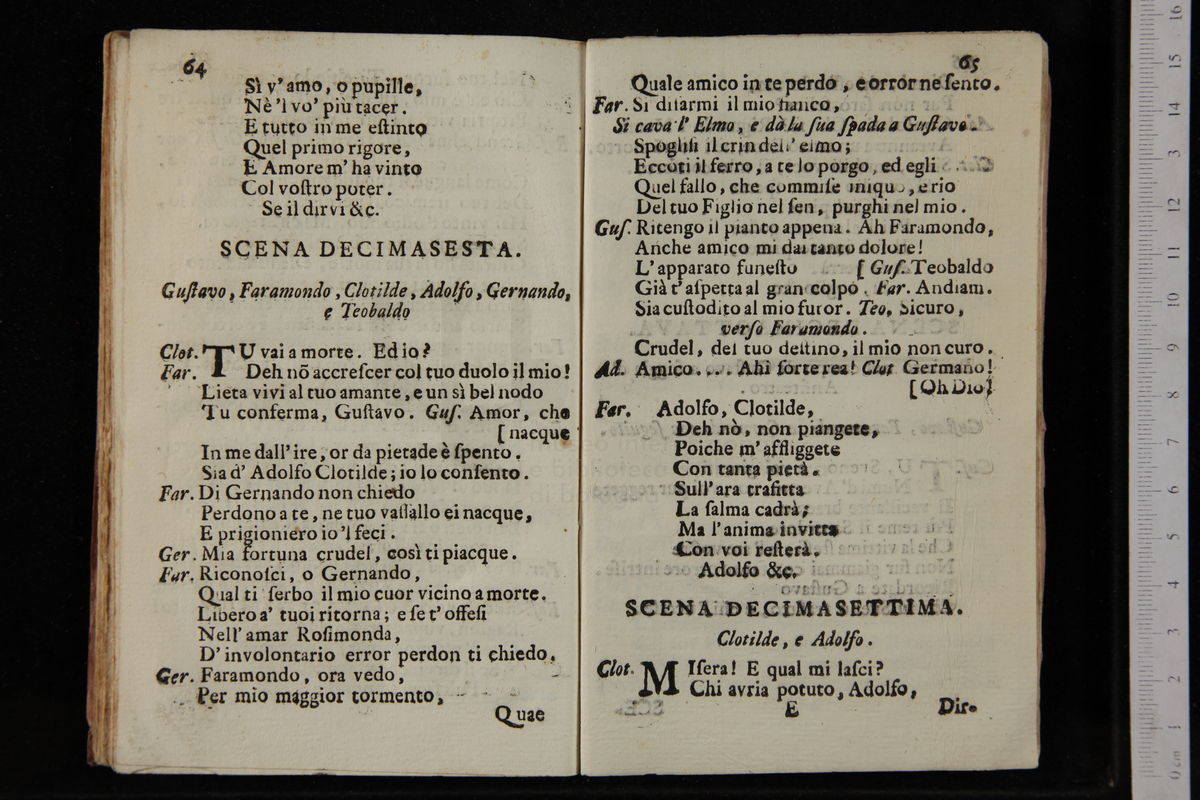 64
Sì v' amo, o pupille,
Nè 'l vo' più tacer.
E tutto in me eſtinto
Quel primo rigore,
E Amore m' ha vinto
Col voſtro poter.
Se il dirvi &c.
SCENA DECIMASESTA.
Guſtavo, Faramondo, Clotilde, Adolfo, Gernando,
e Teobaldo
Clot. TU vai a morte. Ed io?
Far. Deh nō accreſcer col tuo duolo il mio!
Lieta vivi al tuo amante, e un sì bel nodo
Tu conferma, Guſtavo. Guſ. Amor, che
[nacque
In me dall' ire, or da pietade è ſpento.
Sia d' Adolfo Clotilde; io lo conſento.
Far. Di Gernando non chiedo
Perdono a te, ne tuo vaſſallo ei nacque,
E prigioniero io 'l feci.
Ger. Mia fortuna crudel, così ti piacque.
Far. Riconoſci, o Gernando,
Qual ti ſerbo il mio cuor vicino a morte.
Libero a' tuoi ritorna; e ſe t' offeſi
Nell' amar Roſimonda,
D' involontario error perdon ti chiedo.
Ger. Faramondo, ora vedo,
Per mio maggior tormento,
Quae
65
Quale amico in te perdo, e orror ne ſento.
Far. Si diſarmi il mio fianco,
Si cava l' Elmo, e dà la ſua ſpada a Guſtavo.
Spogliſi il crin dell' elmo;
Eccoti il ferro, a te lo porgo, ed egli
Quel fallo, che commiſe iniquo, e rio
Del tuo Figlio nel ſen, purghi nel mio.
Guſ. Ritengo il pianto appena. Ah Faramondo,
Anche amico mi dai tanto dolore!
L' apparato funeſto [Guſ. Teobaldo
Già t' aſpetta al gran colpo. Far. Andiam.
Sia cuſtodito al mio furor. Teo. Sicuro,
verſo Faramondo.
Crudel, del tuo deſtino, il mio non curo.
Ad. Amico.... Ahi ſorte rea! Clot Germano!
[Oh Dio]
Far. Adolfo, Clotilde,
Deh nò, non piangete,
Poiche m' affliggete
Con tanta pietà.
Sull' ara trafitta
La ſalma cadrà;
Ma l' anima invitta
Con voi reſterà.
Adolfo &c.
SCENA DECIMASETTIMA.
Clotilde, e Adolfo.
Clot. MIſera! E qual mi laſci?
Chi avria potuto, Adolfo,
E Dir.
0 cm 1 2 3 4 5 6 7 8 9 10 11 12 13 14 15 16